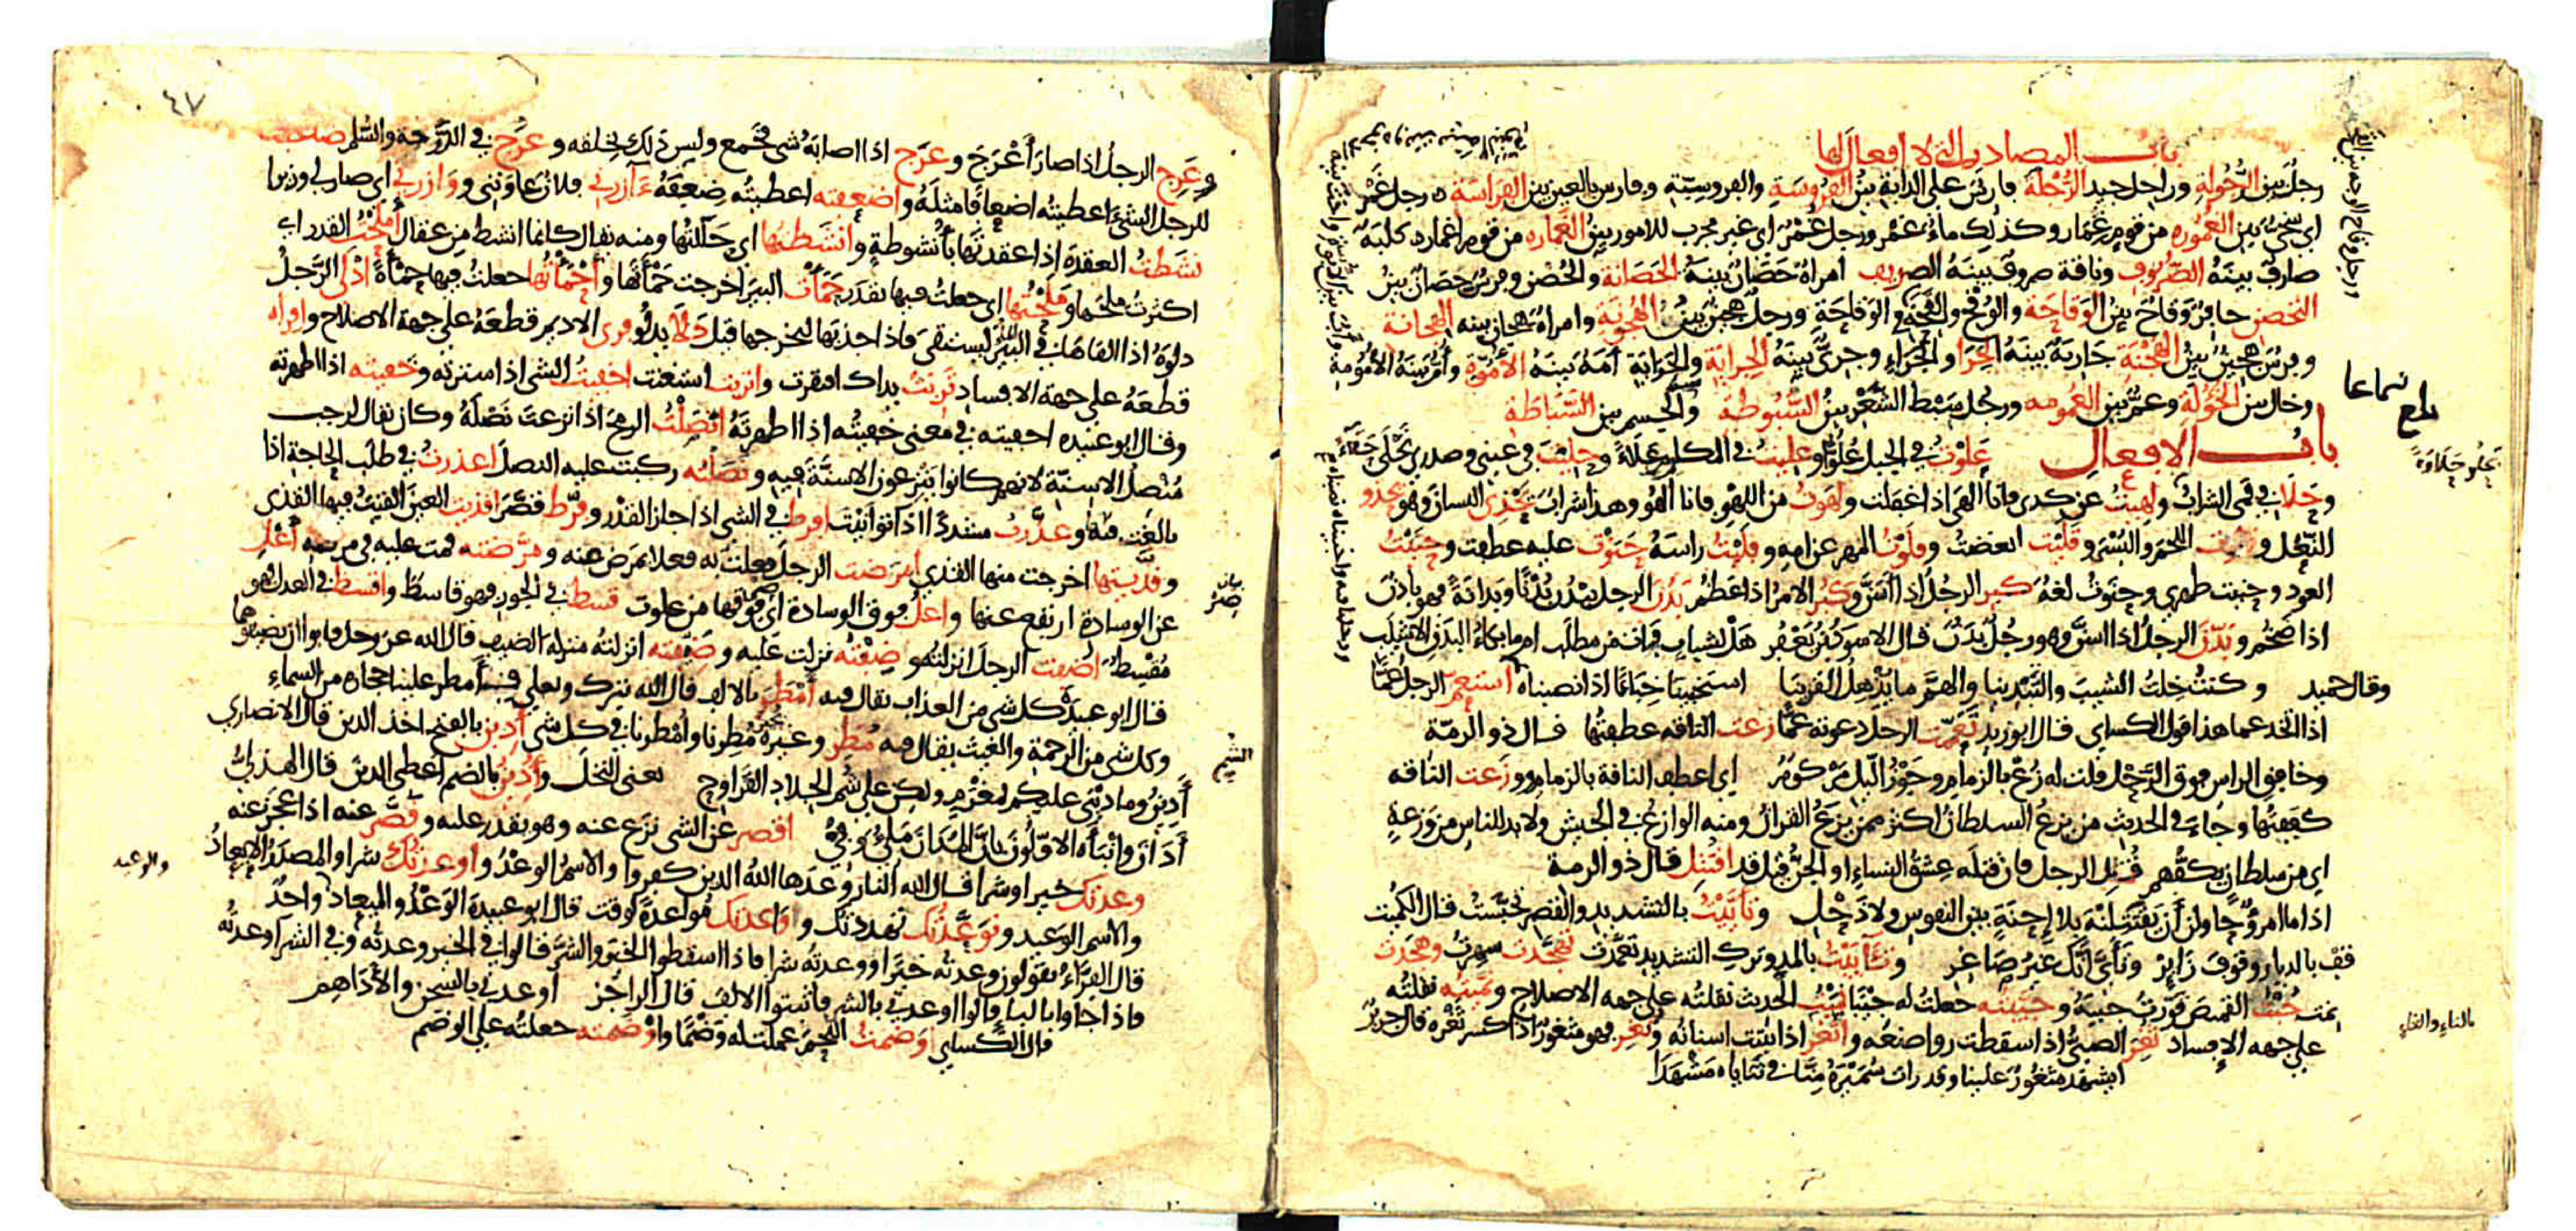 باب المصادر التي لا افعال لها
رجل بين الرجولة وراجل جيد الرحلة فارس على الدابة بين الفروسة والفروسية وفارس بالعين بين الفراسة ورجل غمر
اي سخي بين الغمورة من قوم غمار وكذلك ماء غمر ورجل غمر اي غير مجرب للامور بين الغمارة من قوم اغمار كلبة
صارف بينة الصروف وناقة صروف بينة الصريف امراة حصان بينة الحصانة والحصن وفرس حصان بين
التحصن حافر وقاح بين الوقاحة والوقح والقحة ورجل وقاح بين القحة والوقاحة ورجل هجين بين الهجونة وامراة هجان بينه الهجانة
وفرس هجين بين الهجنة جارية بينة الجرا والجراء وجري بينة الجراية والجراية امة بينة الاموة وام بينة الامومة
وخال بين الخؤولة وعم بين العمومه ورجل سبط الشعر بين السبوطة والجسم بين السباطة
باب الافعال علوت في الجبل علوا وعليت في المكارم علاء وحليت في عيني وصدري تحلى
وحلا في فمي الشراب ولهيت عن كذى فانا الهى اذا غفلت ولهوت من اللهو فانا الهو وهذا شراب يحذي اللسان وهو يحذو
النعل اللحم والبسر وقليت ابغضت وفلوت المهر عن امه وفليت راسه حنوت عليه عطفت وحنيت
العود وحنيت ظهري وحنوت لغة كبر الرجل اذا اسن وكبر الامر اذا عظم بدن الرجل يبدن بدنا وبدانة فهو بادن
اذا ضخم وبدن الرجل اذا اسن وهو رجل بدن قال الاسود بن يعفر هل لشباب فات من مطلب ام ما بكاء البدن الاشيب
وقال حميد وكنت خلت الشيب والتبدينا والهم مما يذهل القرينا استخبينا خباء اذا نصبناه استعم الرجل عما
اذا اتخذه عما هذا قول الكساي قال ابو زيد تعممت الرجل دعوته عما زعت الناقه عطفتها قال ذو الرمة
وخافق الراس فوق الرحل قلت له زع بالزمام وجوز الليل مركوم اي اعطف الناقة بالزمام ووزعت الناقه
كففتها وجاء في الحديث من يزع السلطان اكثر ممن يزع القران ومنه الوازع في الجيش ولا بد للناس من وزعة
اي من سلطان يكفهم قتل الرجل فان قتله عشق النساء او الجن قيل قد اقتتل قال ذو الرمة
اذا ما امرؤ حاولن ان يقتتلنه بلا احنة بين النفوس ولا ذحل وتاييت بالتشديد والقصر تحبست قال الكميت
قف بالديار وقوف زاير وتاي انك غير صاغر وتاييت بالمد وترك التشديد تعمدت تهجدت سهرت وهجدت
نمت جبت القميص قورت جيبه وجيبته جعلت له جيبا نميت الحديث نقلته على جهه الاصلاح ونميته نقلته
على جهه الافساد ثغر الصبي اذا سقطت رواضعه واثغر اذا نبتت اسنانه وثغر فهو مثغور اذا كسر ثغره قال جرير
ايشهد مثغور علينا وقد راى سميرة منا في ثناياه مشهدا
بلغ سماعا
بالتاء والثاء
٤٧
وعرج الرجل اذا صار اعرج وعرج اذا اصابه شي فخمع وليس ذلك بخلقه وعرج في الدرجه والسلم ضعفت
للرجل الشيء اعطيته اضعافا مثله واضعفته اعطيته ضعفه ءآزرني فلان عاونني ووازرني اي صار لي وزيرا
نشطت العقدة اذا عقدتها بانشوطة وانشطتها اي حللتها ومنه يقال كانما انشط من عقال املحت القدر اي
اكثرت ملحها وملحتها اي جعلت فيها بقدر حمات البير اخرجت حماتها واحماتها جعلت فيها حماة ادلى الرجل
دلوه اذا القاها في البير ليستقي فاذا جذبها ليخرجها قيل دلا يدلو فرى الاديم قطعه على جهة الاصلاح وافراه
قطعه على جهة الافساد تربت يداك افتقرت واتربت استغنت اخفيت الشي اذا سترته وخفيته اذا اظهرته
وقال ابو عبيده اخفيته في معنى خفيته اذا اظهرته انصلت الرمح اذا نزعت نصله وكان يقال لرجب
منصل الاسنة لانهم كانوا ينزعون الاسنة فيه ونصلته ركبت عليه النصل اعذرت في طلب الحاجة اذا
بالغت فيه وعذرت مشددة اذا توانيت افرط في الشي اذا جاز القدر وفرط قصر اقذيت العين القيت فيها القذى
وقذيتها اخرجت منها القذي امرضت الرجل فعلت به فعلا يمرض عنه ومرضته قمت عليه في مرضه اعل
عن الوسادة ارتفع عنها واعل فوق الوسادة اي صر فوقها من علوت قسط في الجور فهو قاسط واقسط في العدل فهو
مقسط اضفت الرجل انزلته وضفته نزلت عليه وضيفته انزلته منزلة الضيف قال الله عز وجل فابوا ان يضيفوهما
قال ابو عبيدة كل شي من العذاب يقال فيه امطر بالالف قال الله تبرك وتعلي فامطر علينا حجارة من السماء
وكل شي من الرحمة والغيث يقال فيه مطر وغيره يجيز مطرنا وامطرنا في كل شي ادين بالفتح اخذ الدين قال الانصاري
ادين وما ديني عليكم بمغرم ولكن على شم الجلاد القراوح يعني النخل وادين بالضم اعطي الدين قال الهذلي
ادان وانباه الاولون بان المدان ملي وفي اقصر عن الشي نزع عنه وهو يقدر عليه وقصر عنه اذا عجز عنه
وعدتك خيرا وشرا قال الله النار وعدها الله الذين كفروا والاسم الوعد واوعدتك شرا والمصدر الايعاد
والاسم الوعيد وتوعدتك تهددتك وواعدتك مواعدة لوقت قال ابو عبيدة الوعد والميعاد واحد
قال الفراء يقولون وعدته خيرا ووعدته شرا فاذا اسقطوا الخير والشر قالوا في الخير وعدته وفي الشر اوعدته
فاذا جاوا بالبا قالوا اوعدته بالشر فاثبتوا الالف قال الراجز اوعدني بالسجن والاداهم
قال الكساي وضمت اللحم عملت له وضما واوضمته جعلته على الوضم
والوعيد